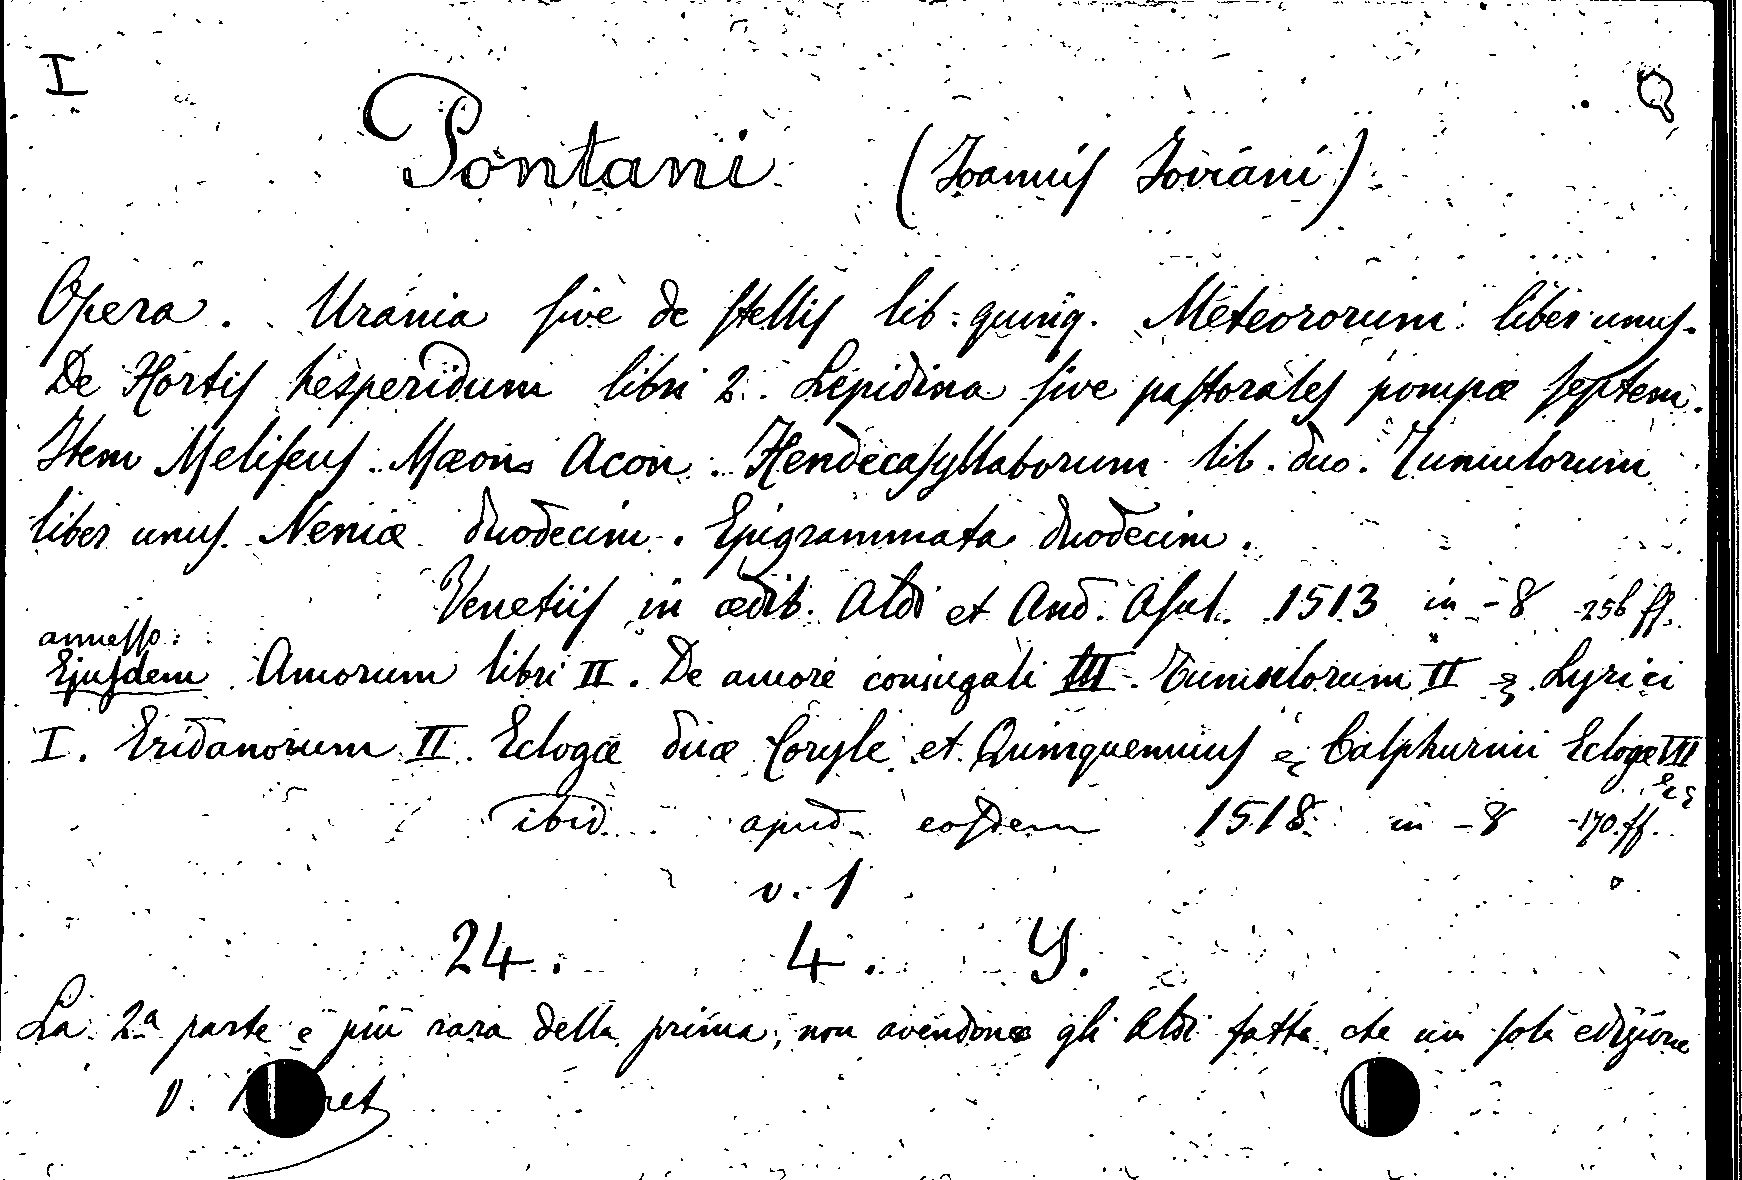 I Q
Pontani (Joannis Joviani)
Opera. Urania sive de stellis lib. quinq. Meteororum liber unus.
De Hortis hesperidum libri 2. Lepidina sive pastorales pompæ septem.
Item Meliseus. Mæon Acon. Hendecasyllaborum lib. duo. Tumulorum
liber unus. Neniæ duodecim. Epigrammata duodecim.
Venetiis in ædib. Aldi et And. Asul. 1513 in-8 256 ff.
annesso:
Ejusdem Amorum libri II. De amore conjugali III. Tumulorum II & Lyrici
I. Eridanorum II. Eclogæ duæ Coryle et Quinquennius & Calphurnii Eclogæ VII
&c &
ibid. apud eosdem 1518 in-8 170 ff.
v. 1
24. 4. Y.
La 2a parte è più rara della prima, non avendone gli Aldi fatta che una sola edizione
V.